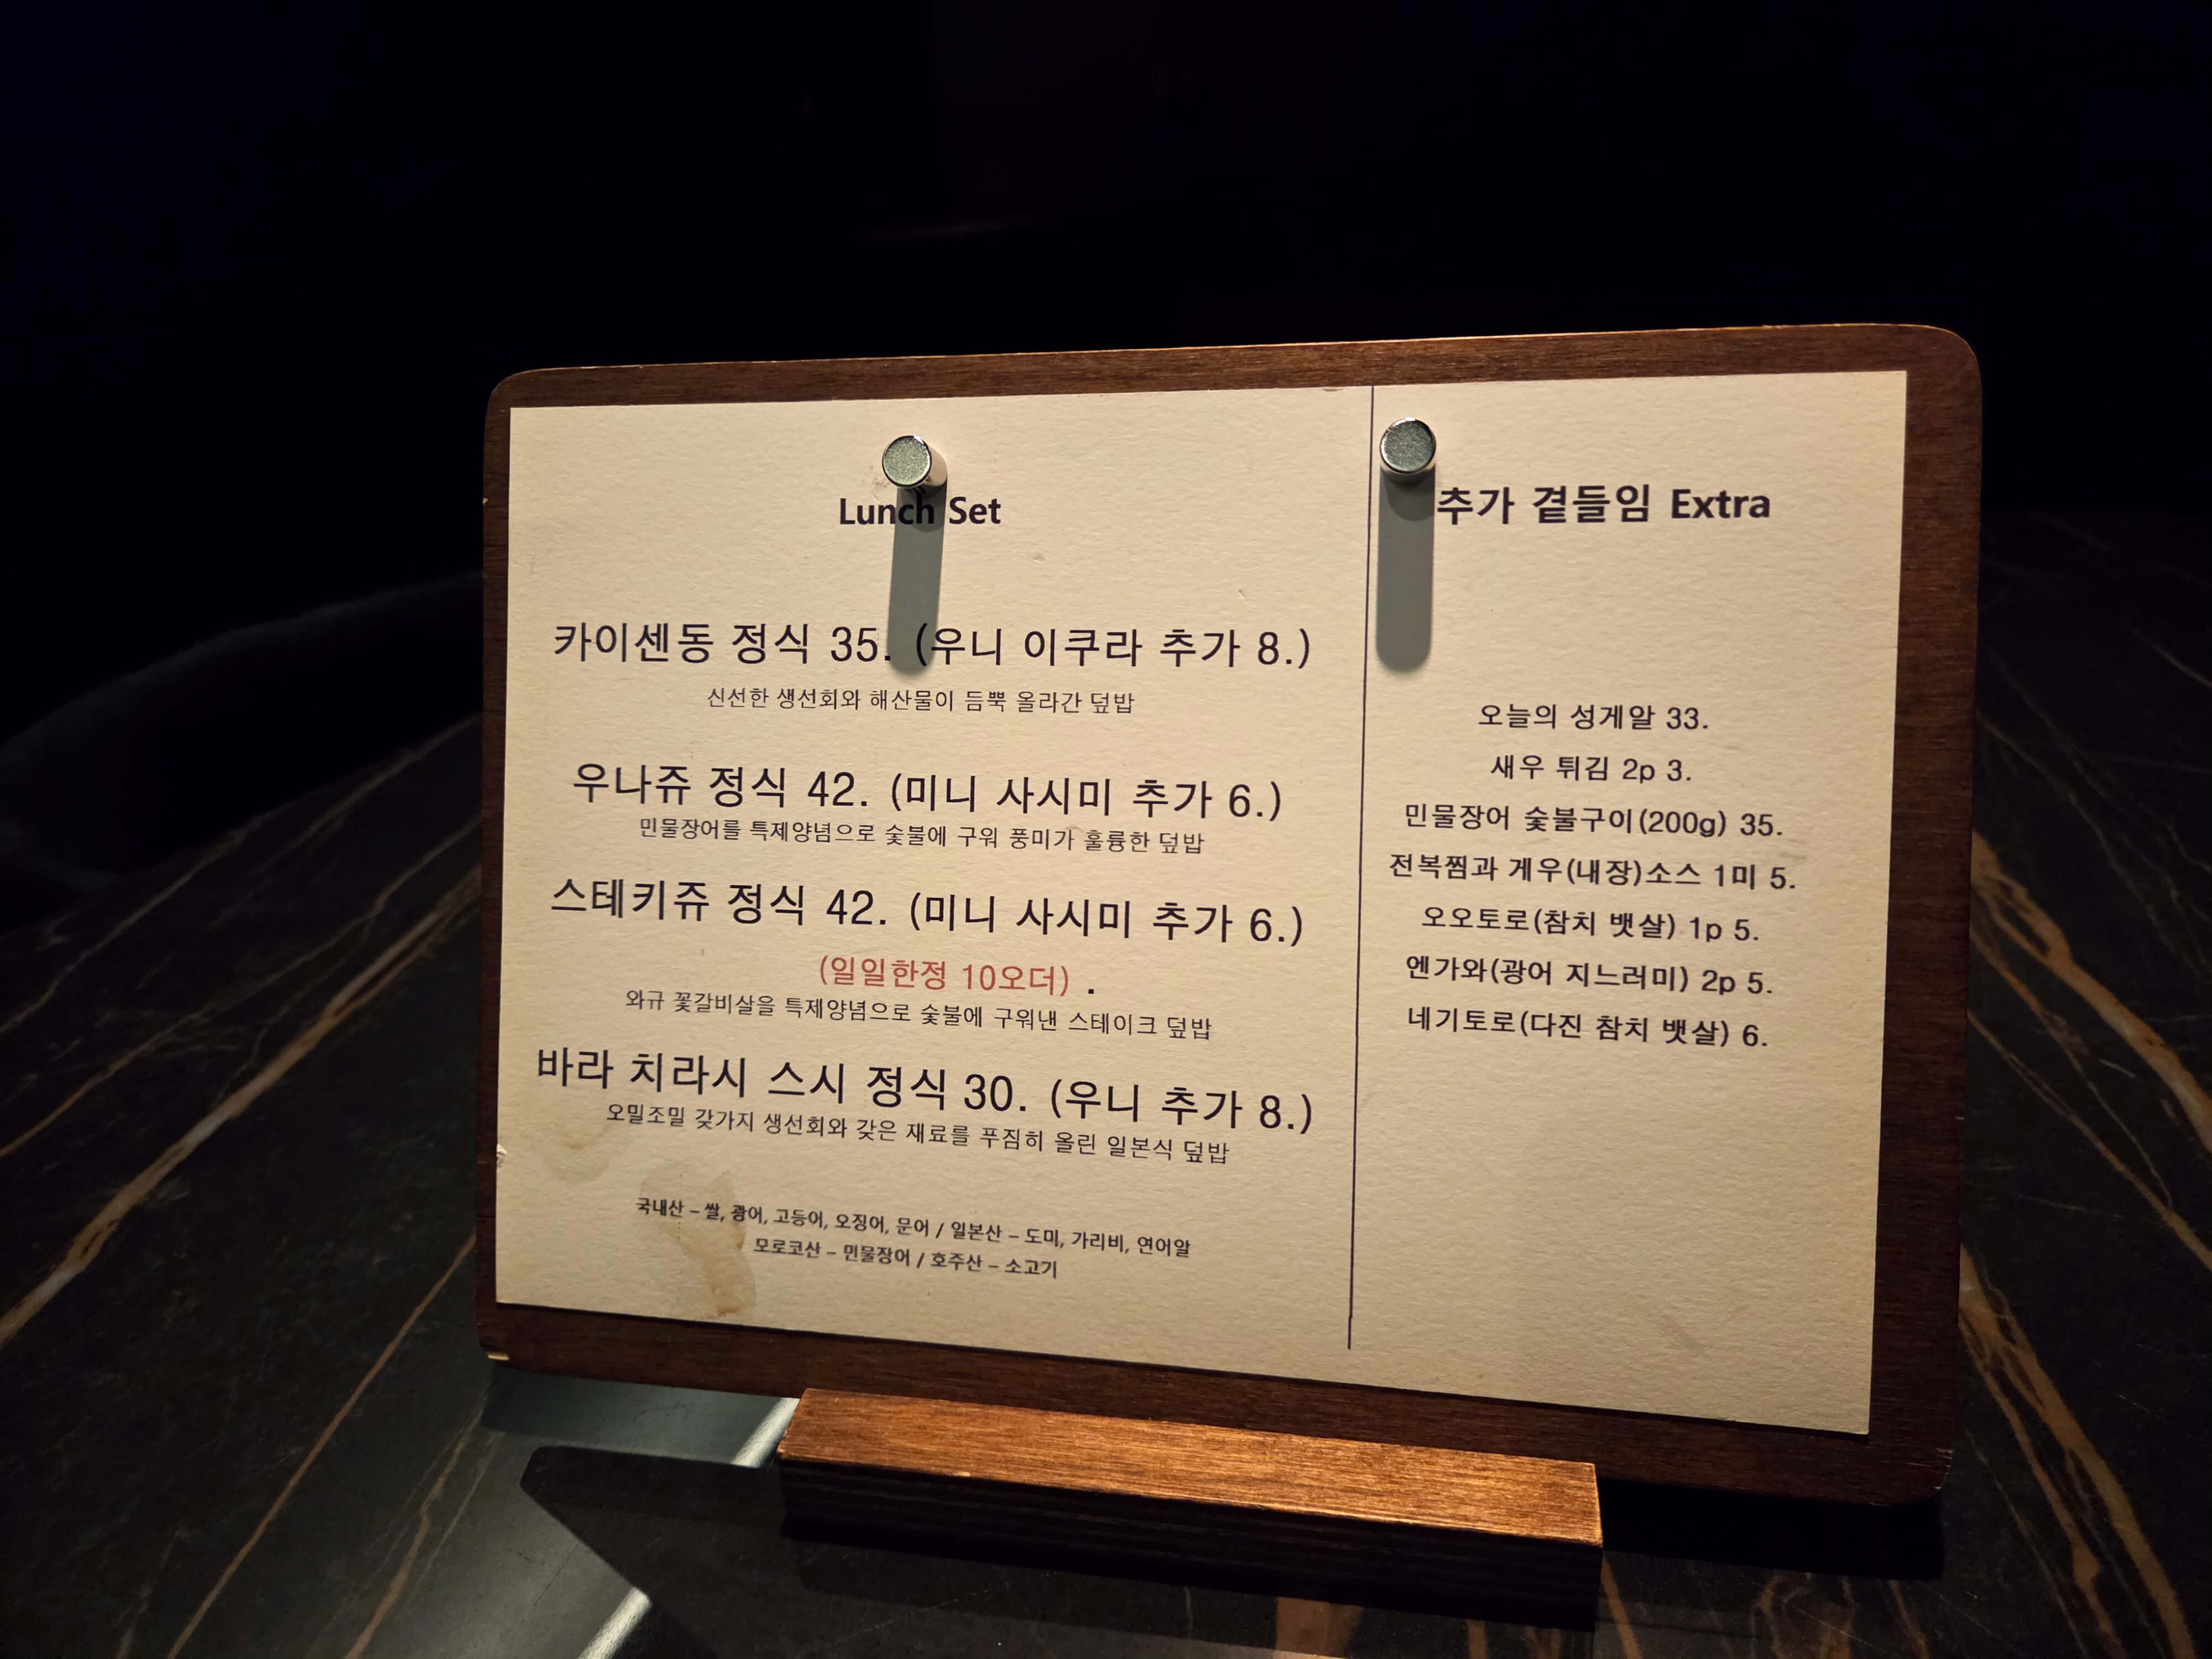 Lunch Set
카이센동 정식 35. (우니 이쿠라 추가 8.)
신선한 생선회와 해산물이 듬뿍 올라간 덮밥
우나쥬 정식 42. (미니 사시미 추가 6.)
민물장어를 특제양념으로 숯불에 구워 풍미가 훌륭한 덮밥
스테키쥬 정식 42. (미니 사시미 추가 6.)
(일일한정 10오더) .
와규 꽃갈비살을 특제양념으로 숯불에 구워낸 스테이크 덮밥
바라 치라시 스시 정식 30. (우니 추가 8.)
오밀조밀 갖가지 생선회와 갖은 재료를 푸짐히 올린 일본식 덮밥
국내산 – 쌀, 광어, 고등어, 오징어, 문어 / 일본산 – 도미, 가리비, 연어알
모로코산 – 민물장어 / 호주산 – 소고기
추가 곁들임 Extra
오늘의 성게알 33.
새우 튀김 2p 3.
민물장어 숯불구이(200g) 35.
전복찜과 게우(내장)소스 1미 5.
오오토로(참치 뱃살) 1p 5.
엔가와(광어 지느러미) 2p 5.
네기토로(다진 참치 뱃살) 6.